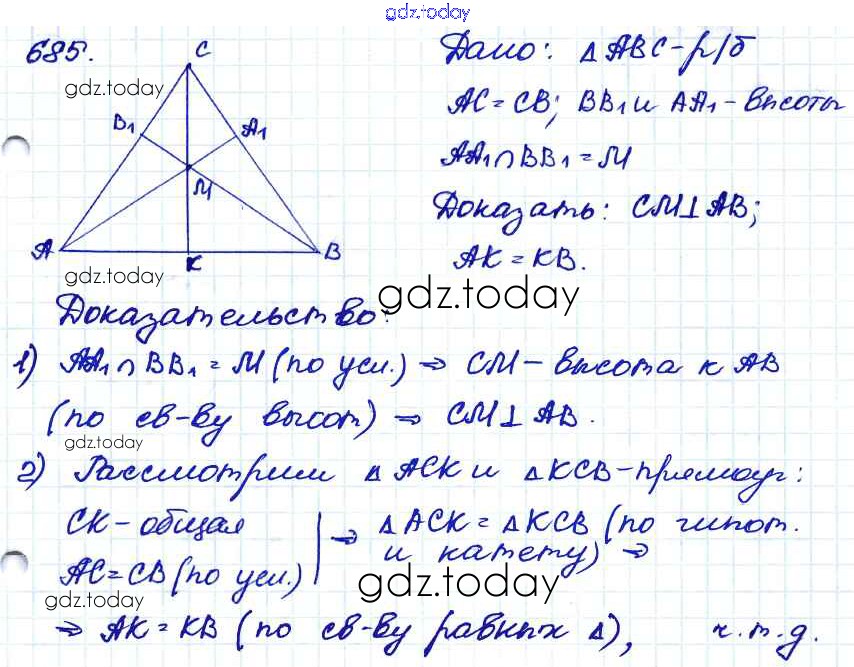 gdz.today
685.
C
gdz.today
B₁
A₁
M
A
K
B
gdz.today
Дано: Δ ABC - р/б
AC = CB; BB₁ и AA₁ - высоты
AA₁ ∩ BB₁ = M
Доказать: CM ⊥ AB;
AK = KB.
gdz.today
Доказательство:
1) AA₁ ∩ BB₁ = M (по усл.) ⇒ CM - высота к AB
(по св-ву высот) ⇒ CM ⊥ AB.
gdz.today
2) Рассмотрим Δ ACK и Δ KCB - прямоуг:
CK - общая
AC = CB (по усл.)
⇒ Δ ACK = Δ KCB (по гипот.
и катету) ⇒
gdz.today
gdz.today
⇒ AK = KB (по св-ву равных Δ), ч.т.д.